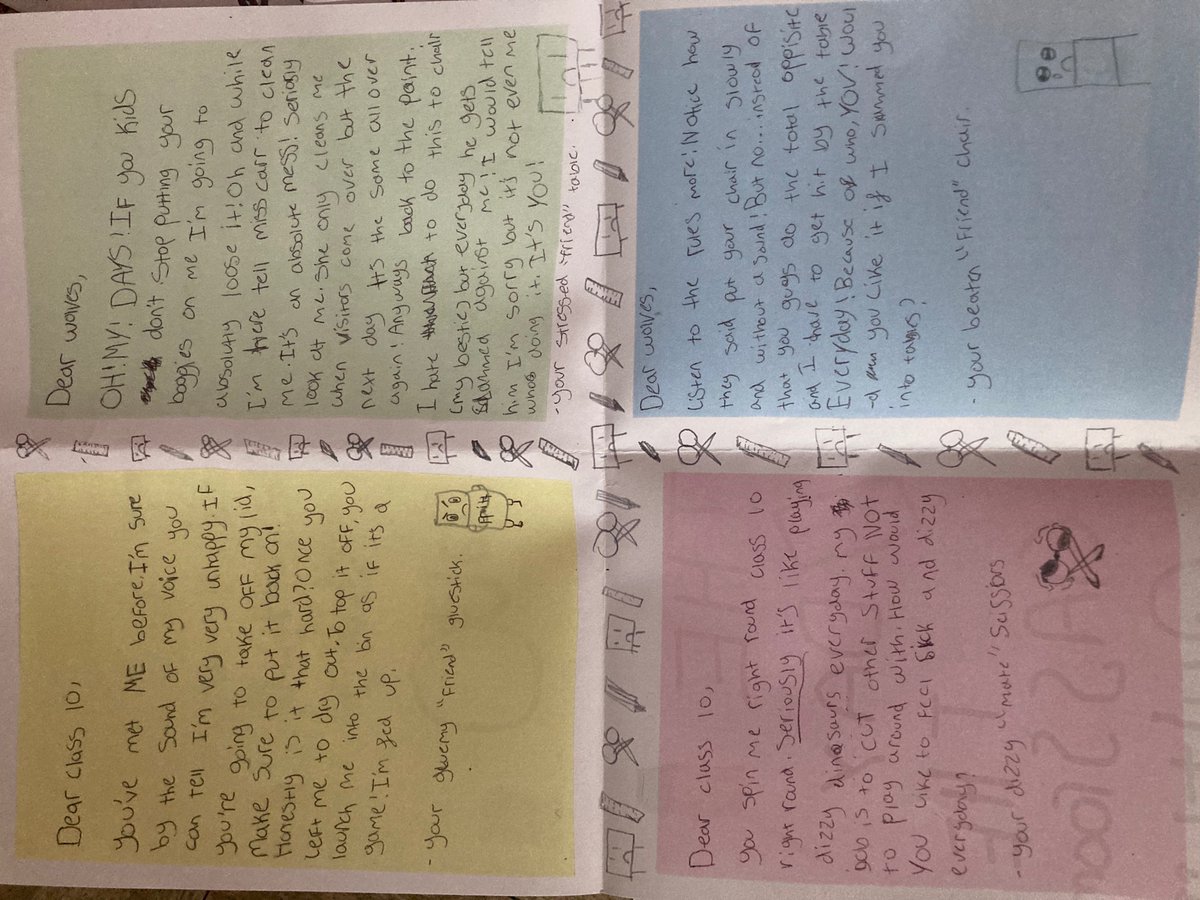 Dear class 10,
You've met ME before. I'm sure
by the sound of my voice you
can tell I'm very very unhappy. If
you're going to take off my lid,
Make sure to put it back on!
Honestly is it that hard? Once you
left me to dry out. To top it off, you
launch me into the bin as if its a
game! I'm fed up.
- your gluemy "friend" gluestick.
Dear wolves,
OH! MY! DAYS! If you kids
don't stop putting your
boggies on me I'm going to
absolutly loose it! Oh and while
I'm here tell miss carr to clean
me. It's an absolute mess! Seriosly
look at me. She only cleans me
when visitors come over but the
next day its the same all over
again! Anyways back to the point.
I hate to do this to chair
(my bestie) but everyday he gets
slammed against me! I would tell
him I'm sorry but it's not even me
whos doing it. It's YOU!
- your stressed "friend" table.
Dear class 10,
you spin me right round class 10
right round. Seriously it's like playing
dizzy dinosaurs everyday. my
job is to CUT other stuff NOT
to play around with. How would
you like to feel sick and dizzy
everyday?
- your dizzy "mate" scissors
Dear wolves,
Listen to the rules more! Notice how
they said put your chair in slowly
and without a sound! But no... instead of
that you guys do the total oppisite
and I have to get hit by the table
Everyday! Because of who, YOU! Woul
-d you like it if I slammed you
into tables?
- your beaten "friend" chair.